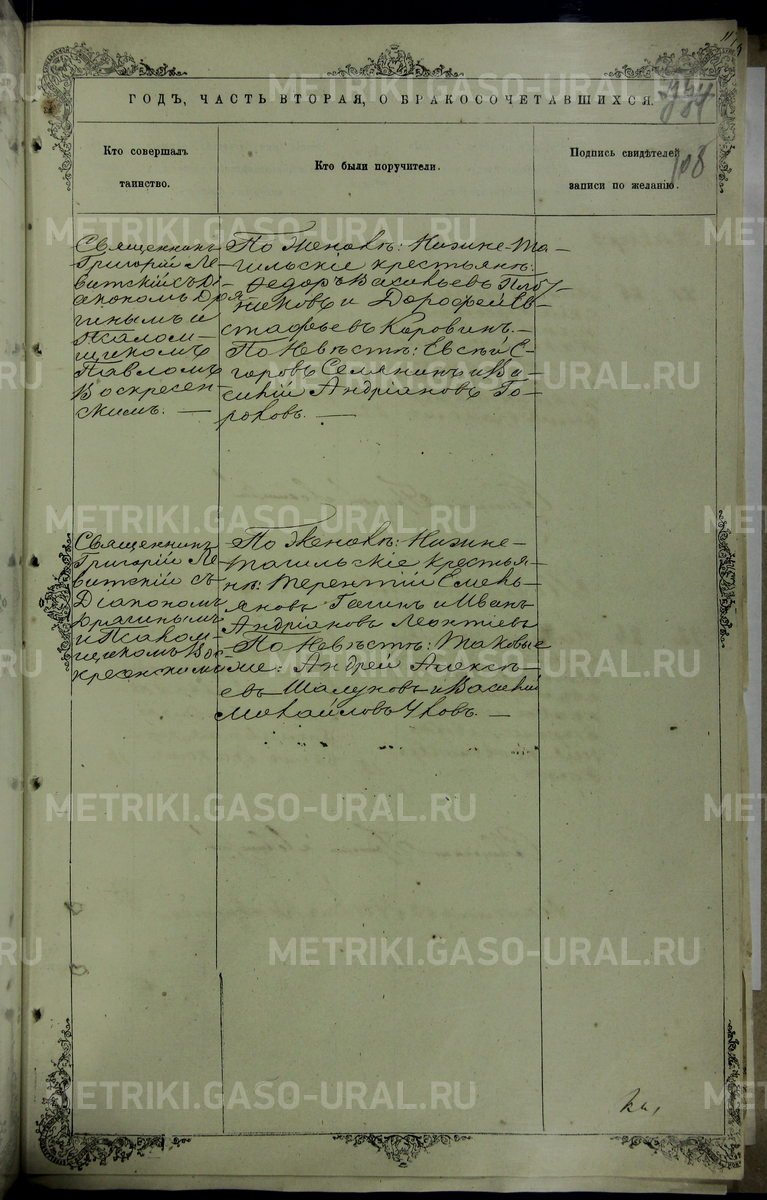 ГОДЪ, ЧАСТЬ ВТОРАЯ, О БРАКОСОЧЕТАВШИХСЯ.
108
Кто совершалъ
таинство.
Кто были поручители.
Подпись свидѣтелей
записи по желанію.
Священникъ
Григорій Ле-
витскій съ Ді-
акономъ Дря-
гинымъ и
Псалом-
щикомъ
Павломъ
Воскресен-
скимъ. —
По Женихѣ: Нижне-Та-
гильскіе крестьяне:
Ѳедоръ Васильевъ
и Дорофей Ев-
стафьевъ Коровинъ. —
По Невѣстѣ: Евсѣй Е-
горовъ Семянинъ и Ва-
силій Андріановъ Го-
роховъ. —
Священникъ
Григорій Ле-
витскій съ
Діакономъ
Дрягинымъ
и Псалом-
щикомъ Вос-
кресенскимъ
По Женихѣ: Нижне-
тагильскіе крестья-
не: Терентій Емель-
яновъ и Иванъ
Андріановъ Леонтьевъ
По Невѣстѣ: Таковые
же: Андрей Алексѣ-
евъ Шалуновъ и Василій
Михайловъ —
METRIKI.GASO-URAL.RU